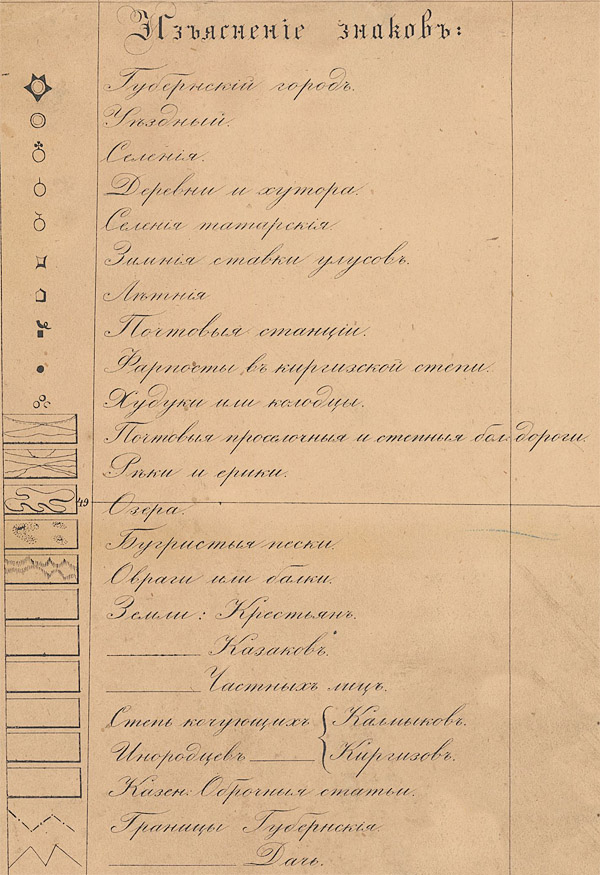 Изъясненіе знаковъ:
Губернскій городъ.
Уѣздный.
Селенія.
Деревни и хутора.
Селенія татарскія.
Зимнія ставки улусовъ.
Лѣтнія
Почтовыя станціи.
Фарпосты въ киргизской степи.
Худуки или колодцы.
Почтовыя проселочныя и степныя бол: дороги.
Рѣки и ерики.
49
Озера.
Бугристыя пески.
Овраги или балки.
Земли: Крестьянъ.
Казаковъ.
Частныхъ лицъ.
Степь кочующихъ Калмыковъ.
Инородцевъ Киргизовъ.
Казен: Оброчныя статьи.
Границы Губернскія.
Дачь.